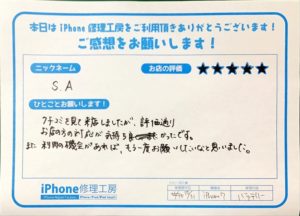 本日は iPhone 修理工房をご利用頂きありがとうございます!
ご感想をお願いします!
ニックネーム
お店の評価
S.A
★★★★★
ひとことお願いします!
クチコミを見て来店しましたが、評価通り
お店の方の対応がお気持ちよかったです。
また利用の機会があれば、もう一度お願いしたいなと思いました。
iPhone修理工房
iPhone7
バッテリー